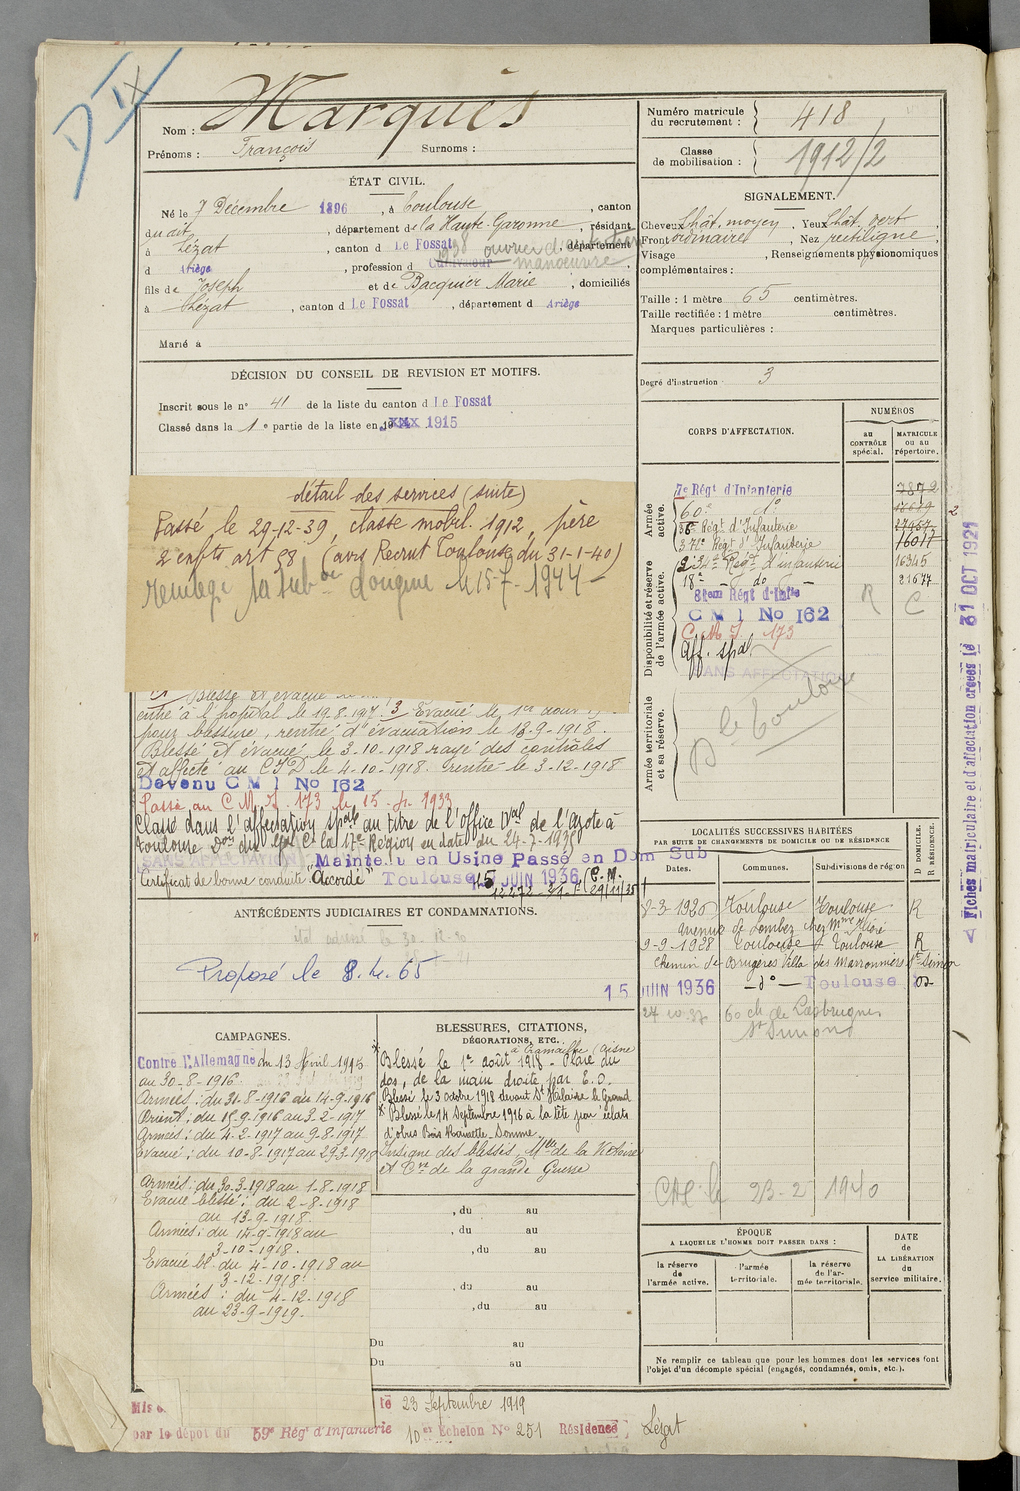 D IX
Nom : Marquès
Prénoms : François Surnoms :
Numéro matricule du recrutement : 418
Classe de mobilisation : 1912/2
ÉTAT CIVIL.
Né le 7 Décembre 1896, à Toulouse, canton
dudit, département de la Haute-Garonne, résidant
à Lézat, canton d Le Fossat, département
d Ariège, profession d Cultivateur manœuvre
fils de Joseph et de Bacquier Marie, domiciliés
à Lézat, canton d Le Fossat, département d Ariège
Marié à
SIGNALEMENT.
Cheveux Chât. moyen, Yeux Chât. vert,
Front ordinaire, Nez rectiligne,
Visage , Renseignements physionomiques
complémentaires :
Taille : 1 mètre 65 centimètres.
Taille rectifiée : 1 mètre centimètres.
Marques particulières :
Degré d'instruction 3
DÉCISION DU CONSEIL DE REVISION ET MOTIFS.
Inscrit sous le n° 41 de la liste du canton d Le Fossat
Classé dans la 1e partie de la liste en 1915
détail des services (suite)
Passé le 29-12-39, classe mobil. 1912, père
2 enfts art 58 (avis Recrut Toulouse du 31-1-40)
Blessé et évacué le
entré à l'hopital le 19.8.1917. 3 Evacué le 1er aout
pour blessure, rentré d'évacuation le 13-9-1918.
Blessé et évacué le 3-10-1918 rayé des contrôles
et affecté au C.I.D le 4-10-1918. rentré le 3-12-1918
Devenu C M I No 162
Passé au C.M.I. 173 le 15-4-1933
Classé dans l'affectation spale au titre de l'office Nal de l'Azote à
Toulouse Don du Gal Ct la 17e Région en date du 24-7-1935
SANS AFFECTATION
Maintenu en Usine Passé en Dom Sub
Certificat de bonne conduite "Accordé" Toulouse 15 JUIN 1936
ANTÉCÉDENTS JUDICIAIRES ET CONDAMNATIONS.
Proposé le 8.4.65
CORPS D'AFFECTATION.
NUMÉROS
au CONTRÔLE spécial.
MATRICULE ou au répertoire.
Armée active.
7e Régt d'Infanterie 7872
60e do
Régt d'Infanterie 27467
37e Régt d'Infanterie 16017
Disponibilité et réserve de l'armée active.
234e Régt d'infanterie 16345
18e do 21677
81em Régt d'Infie
C M I No 162 R C
C.M.I. 173
Aff. spal
SANS AFFECTATION
Armée territoriale et sa réserve.
D le Toulouse
Fiches matriculaire et d'affectation créées le 31 OCT 1921
LOCALITÉS SUCCESSIVES HABITÉES
PAR SUITE DE CHANGEMENTS DE DOMICILE OU DE RÉSIDENCE
D DOMICILE. R RÉSIDENCE.
Dates. Communes. Subdivisions de région
8-3-1926 Toulouse Toulouse R
Avenue de Lombez chez Mme
9-9-1928 Toulouse Toulouse R
Chemin de Brugères Villa des Marronniers St-Simon
15 JUIN 1936 — d° — Toulouse D
60 ch de
St Simon
CAL le 23-2-1940
CAMPAGNES.
Contre l'Allemagne du 13 Avril 1915
au 30-8-1916.
Armées : du 31-8-1916 au 14-9-1916
Orient : du 15-9-1916 au 3-2-1917
Armées : du 4-2-1917 au 9-8-1917
Evacué : du 10-8-1917 au 29-3-1918
Armées : du 30-3-1918 au 1-8-1918
Evacué blessé : du 2-8-1918
au 13-9-1918.
Armées : du 14-9-1918 au
3-10-1918.
Evacué bl. du 4-10-1918 au
3-12-1918.
Armées : du 4-12-1918
au 23-9-1919.
BLESSURES, CITATIONS, DÉCORATIONS, ETC.
Blessé le 1er août 1918 à Cramaille (Aisne) Plaie du
dos, de la main droite par E.O.
Blessé le 3 octobre 1918 devant St Hilaire le Grand
Blessé le 14 Septembre 1916 à la tête par éclats
d'obus Bois Somme.
Insigne des blessés, Mlle de la Victoire
et Cve de la grande Guerre
, du au
, du au
, du au
, du au
, du au
Du au
Du au
ÉPOQUE
A LAQUELLE L'HOMME DOIT PASSER DANS :
la réserve de l'armée active.
l'armée territoriale.
la réserve de l'armée territoriale.
DATE de LA LIBÉRATION du service militaire.
Ne remplir ce tableau que pour les hommes dont les services font
l'objet d'un décompte spécial (engagés, condamnés, omis, etc.).
Mis le 23 Septembre 1919
par le dépôt du 59e Régt d'Infanterie 10er Echelon No 251 Résidence Lézat